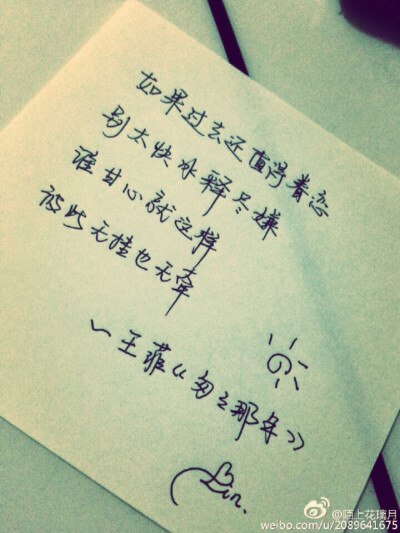 如果过去还值得眷恋
别太快冰释尽嫌
谁甘心就这样
彼此无挂也无牵
~王菲《匆々那年》
Lin.
@陌上花璃月
weibo.com/u/2089641675